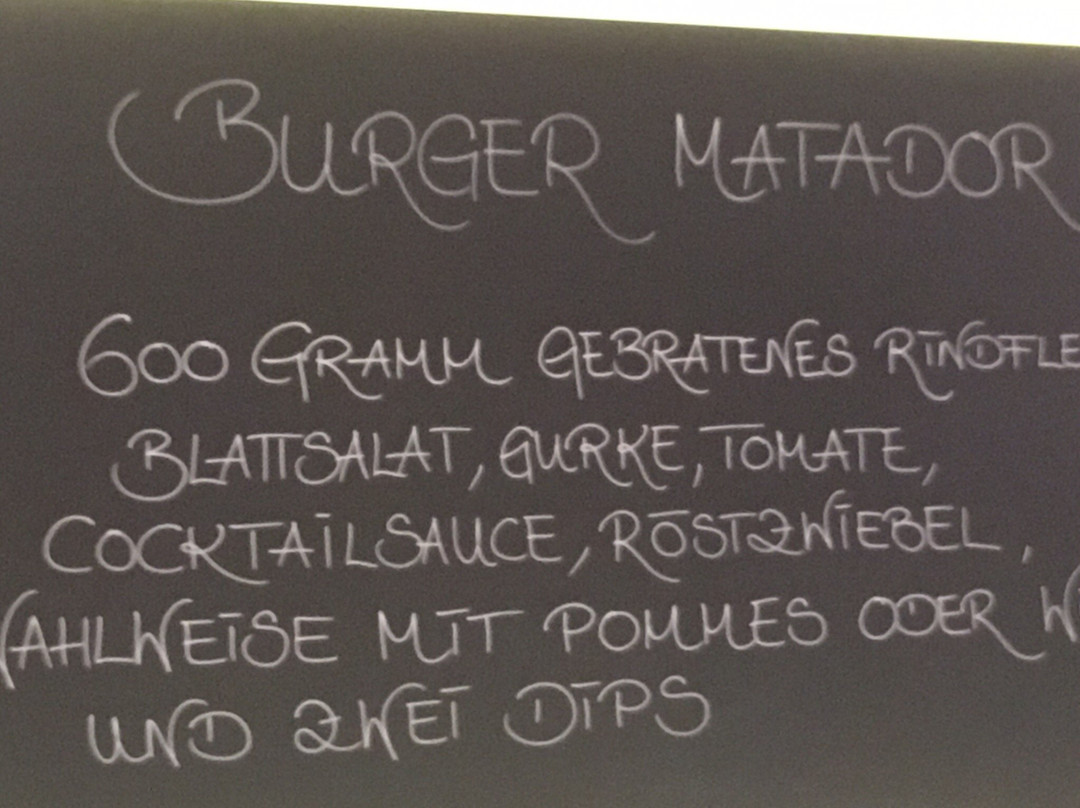 BURGER MATADOR
600 GRAMM GEBRATENES RINDFLE
BLATTSALAT, GURKE, TOMATE,
COCKTAILSAUCE, RÖSTZWIEBEL,
WAHLWEISE MIT POMMES ODER
UND ZWEI DIPS